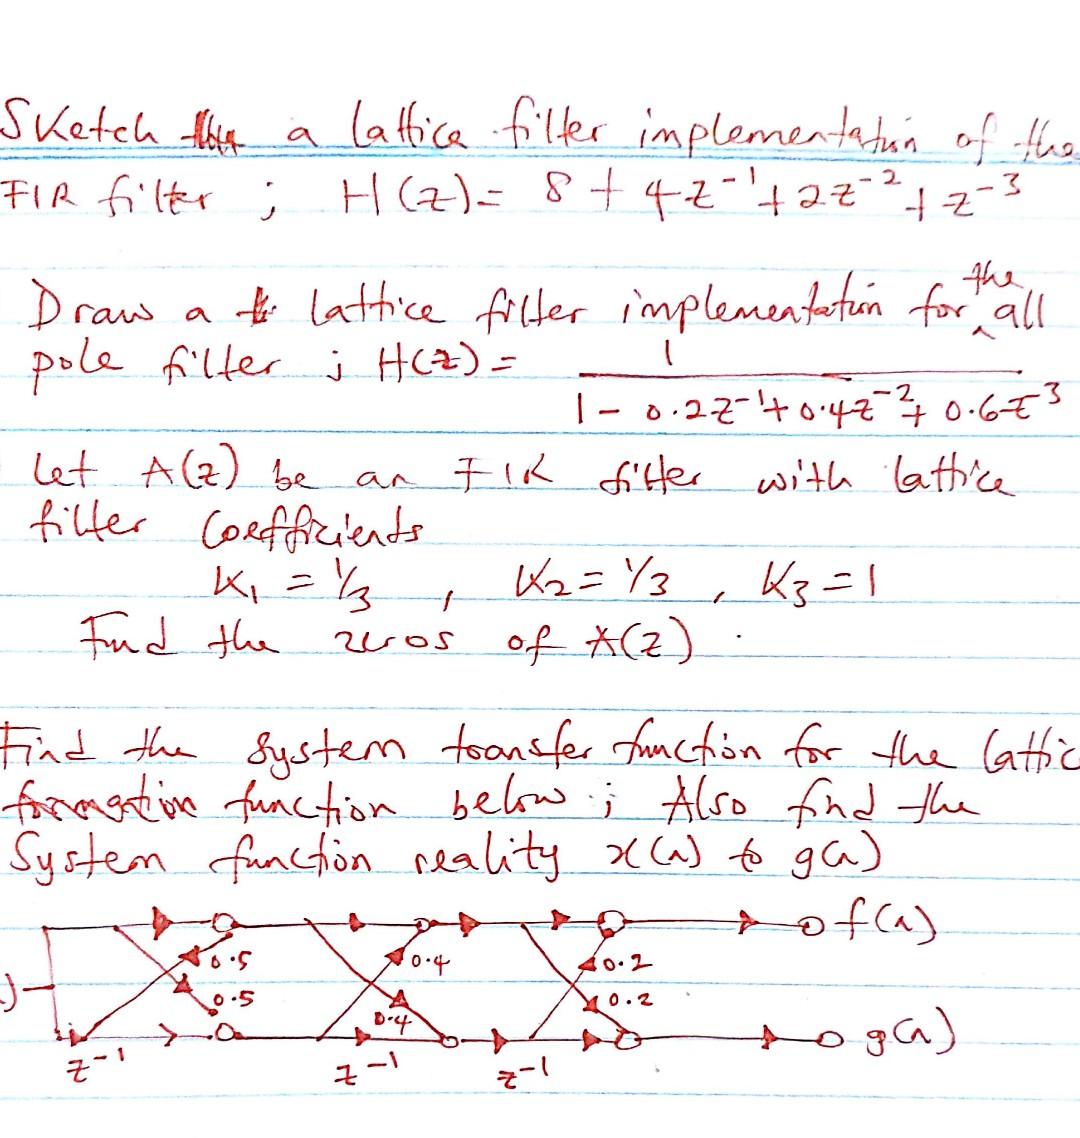 Sketch a lattice filter implementation of the
FIR filter ; H(z) = 8 + 4z⁻¹ + 2z⁻² + z⁻³
Draw a lattice filter implementation for the all
pole filter ; H(z) = 1 / (1 - 0.2z⁻¹ + 0.4z⁻² + 0.6z⁻³)
Let A(z) be an FIR filter with lattice
filter coefficients
K₁ = 1/3 , K₂ = 1/3 , K₃ = 1
Find the zeros of A(z) .
Find the system transfer function for the lattic
function below ; Also find the
System function reality x(n) to g(n)
f(n)
0.5 0.4 0.2
0.5 0.4 0.2
g(n)
z⁻¹ z⁻¹ z⁻¹